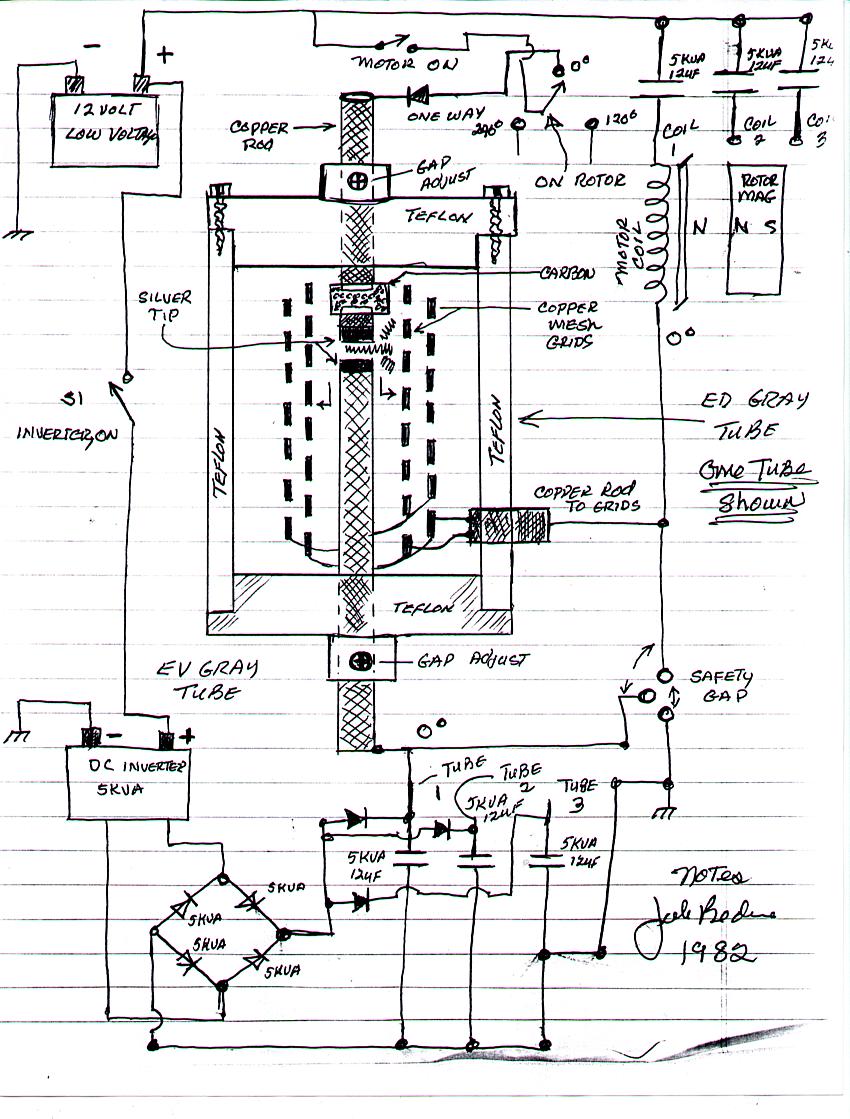 - +
12 VOLT
LOW VOLTAG
MOTOR ON
0°
ONE WAY
240°
120°
ON ROTOR
COPPER
ROD
GAP
ADJUST
TEFLON
5KVA
12UF
5KVA
12UF
COIL
1
COIL
2
3
ROTOR
MAG
N S
N
MOTOR
COIL
0°
SILVER
TIP
CARBON
COPPER
MESH
GRIDS
S1
INVERTER, ON
TEFLON
TEFLON
ED GRAY
TUBE
One TUBE
Shown
COPPER ROD
TO GRIDS
TEFLON
EV GRAY
TUBE
GAP ADJUST
SAFETY
GAP
0°
- +
DC INVERTER
5KVA
TUBE
1
TUBE
2
TUBE
3
5KVA
12UF
5KVA
12UF
5KVA
12UF
5KVA
5KVA
5KVA
5KVA
NOTES
1982